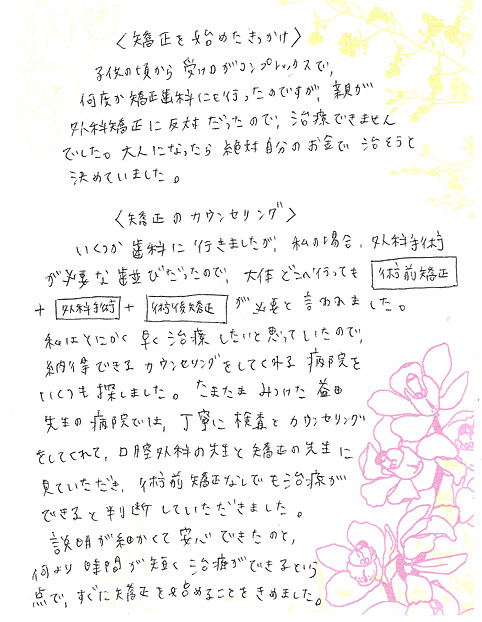 〈矯正を始めたきっかけ〉
子供の頃から受け口がコンプレックスで、
何度か矯正歯科にも行ったのですが、親が
外科矯正に反対だったので、治療できません
でした。大人になったら絶対自分のお金で治そうと
決めていました。
〈矯正のカウンセリング〉
いくつか歯科に行きましたが、私の場合、外科手術
が必要な歯並びだったので、大体どこへ行っても 術前矯正
+ 外科手術 + 術後矯正 が必要と言われました。
私はとにかく早く治療したいと思っていたので、
納得できるカウンセリングをしてくれる病院を
いくつも探しました。たまたまみつけた益田
先生の病院では、丁寧に検査とカウンセリング
をしてくれて、口腔外科の先生と矯正の先生に
見ていただき、術前矯正なしでも治療が
できると判断していただきました。
説明が細かくて安心できたのと、
何より時間が短く治療ができるという
点で、すぐに矯正を始めることをきめました。